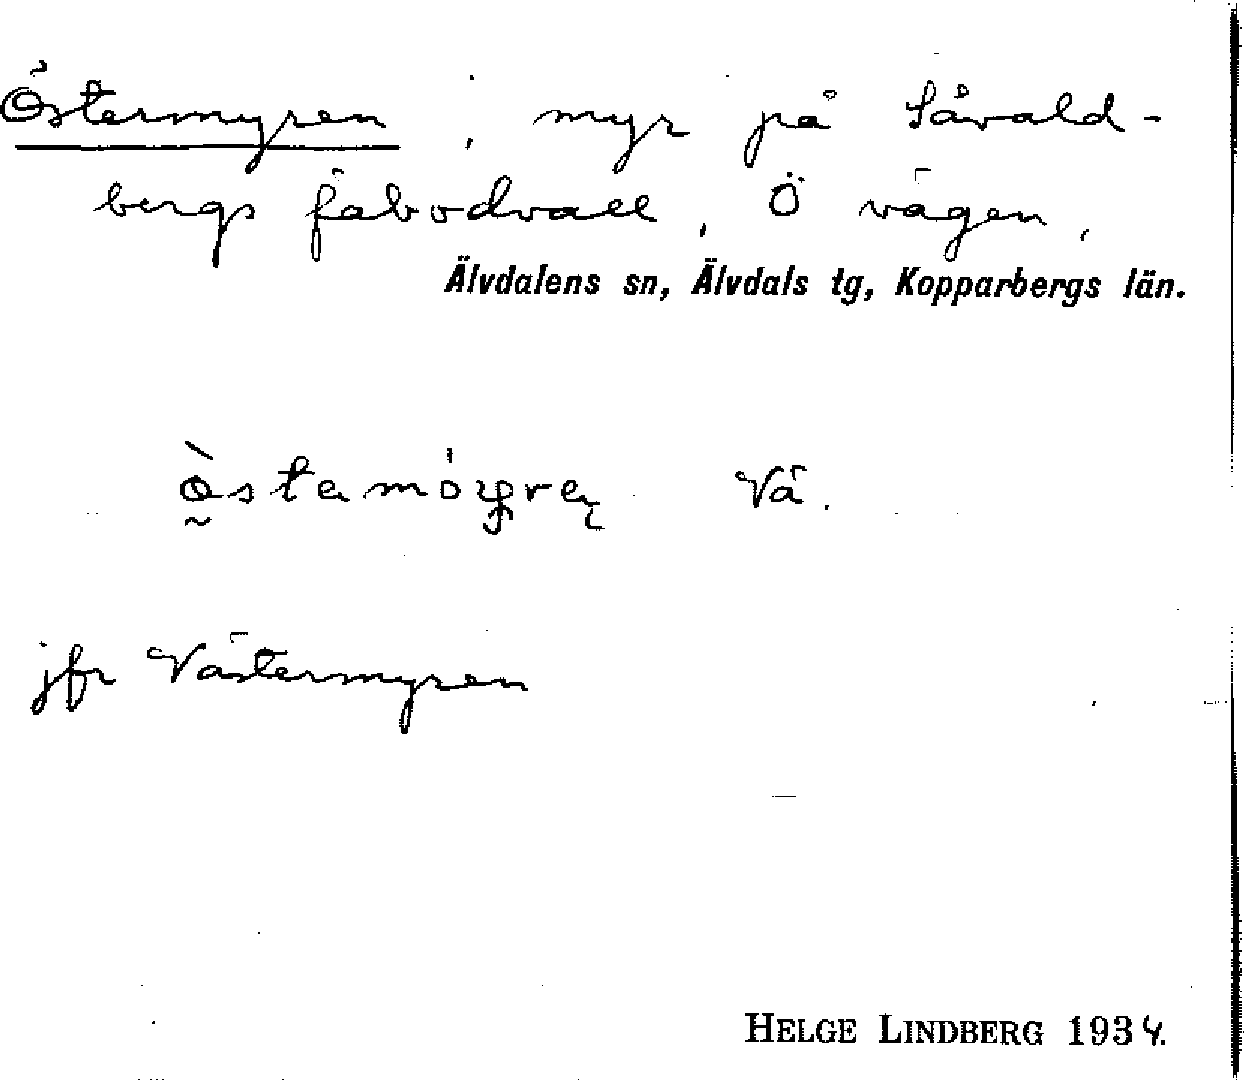 Östermyren, myr på Såvald-
bergs fäbodvall, Ö vägen,
Älvdalens sn, Älvdals tg, Kopparbergs län.
Vä.
jfr Västermyren
HELGE LINDBERG 1934.